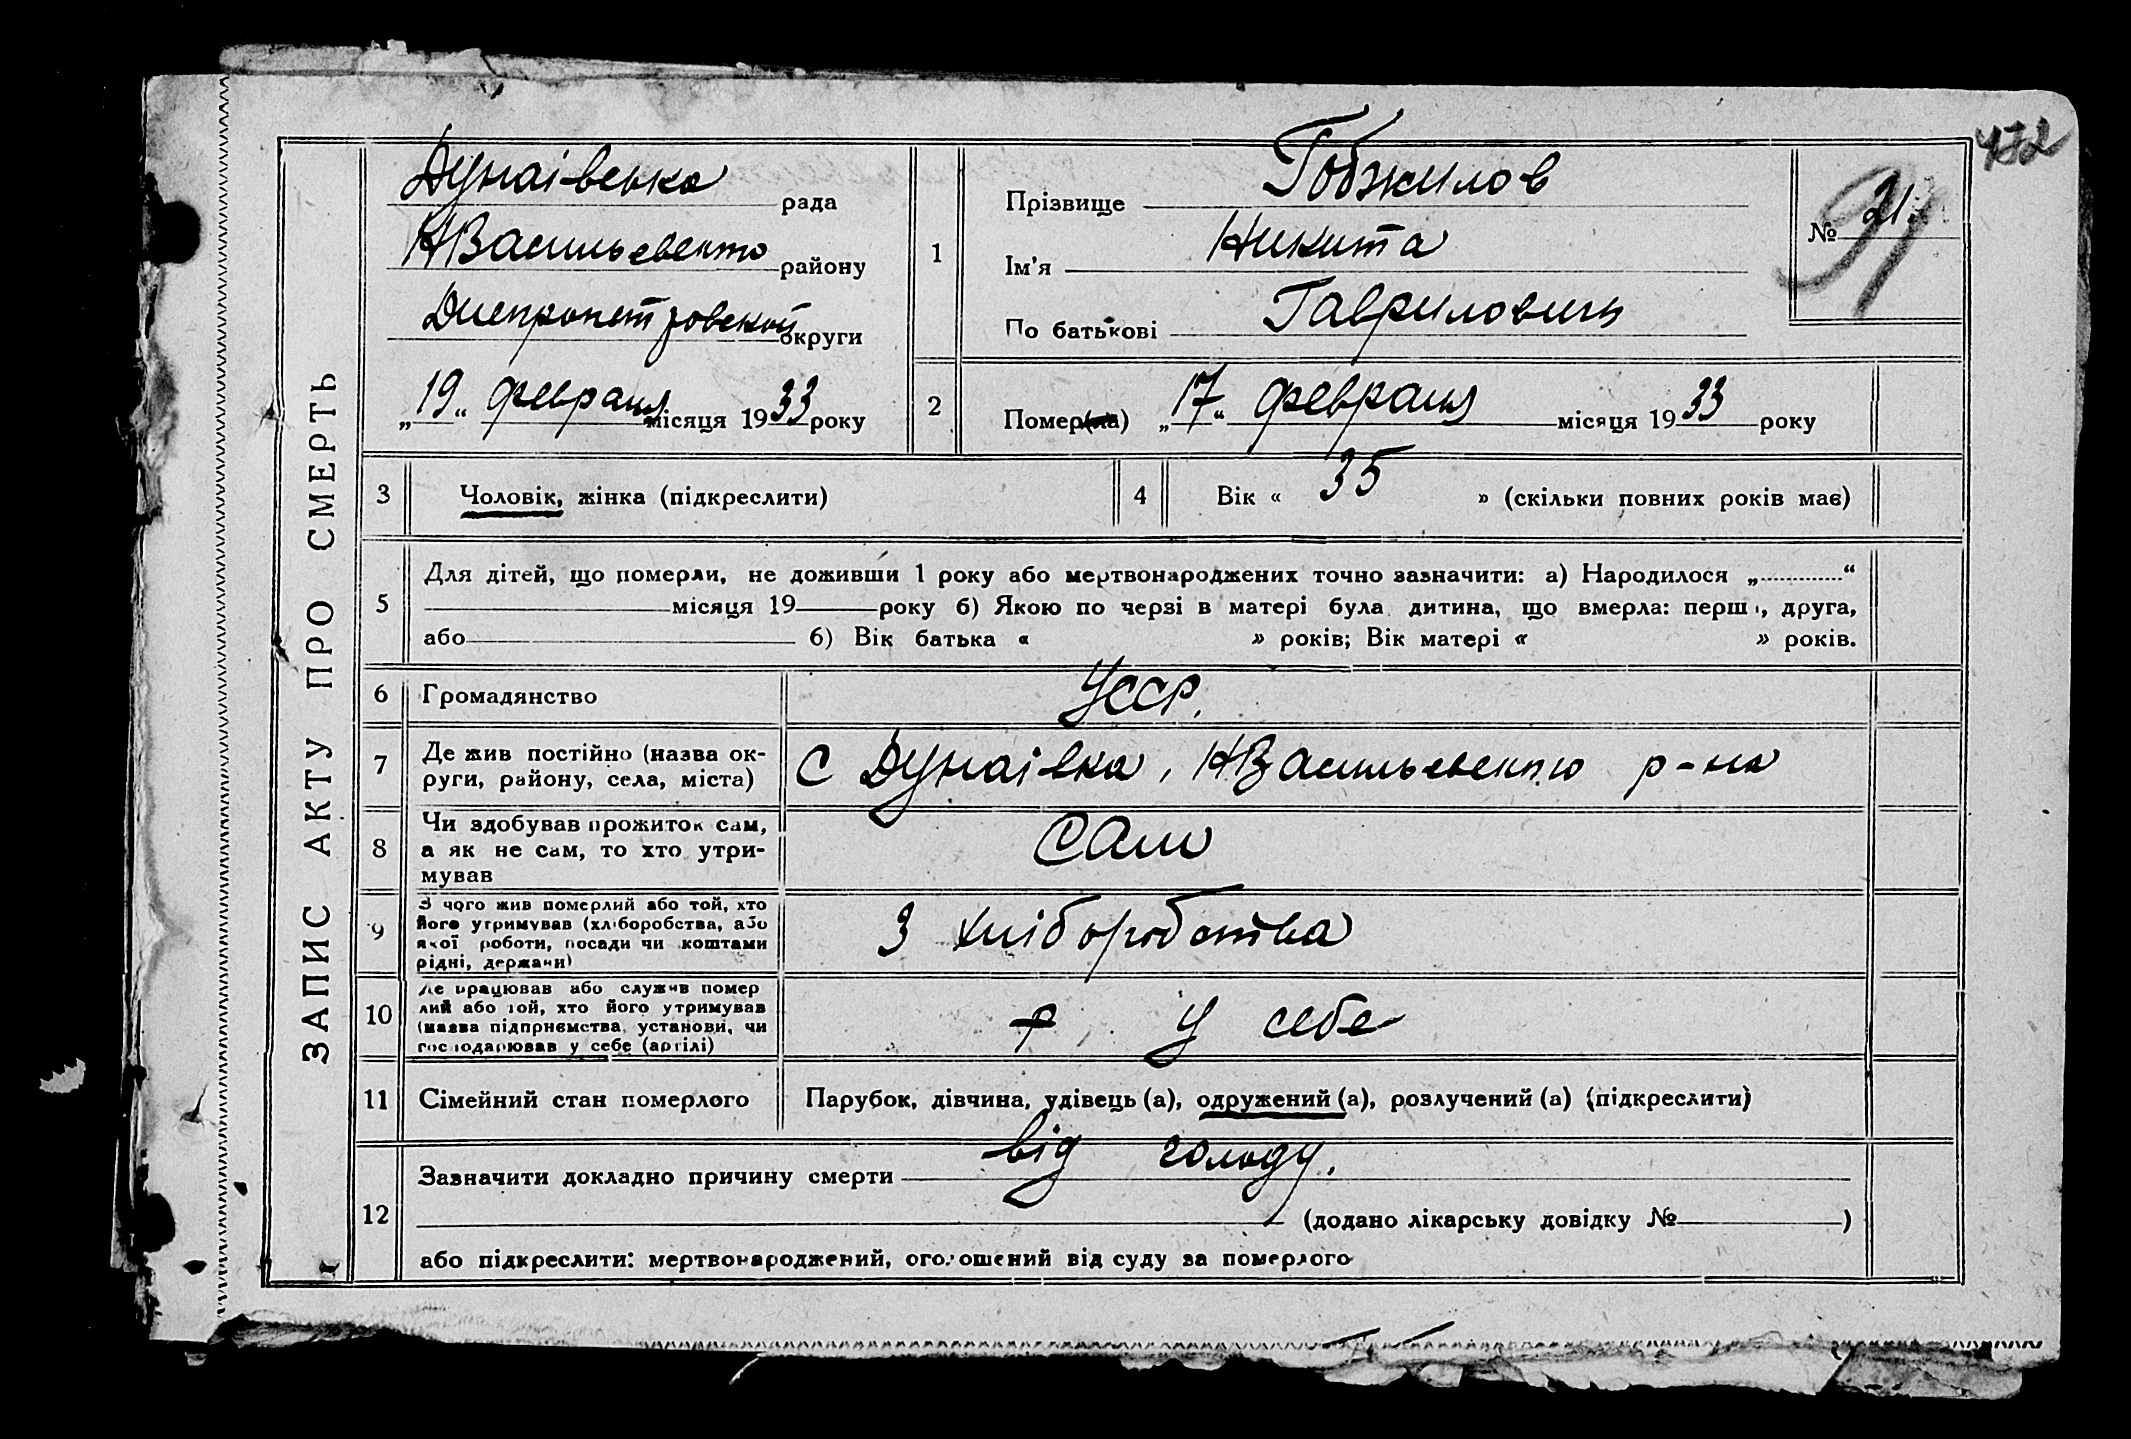 472
ЗАПИС АКТУ ПРО СМЕРТЬ
Дунаівська рада
НВасильевського району
Днепропетровской округи
„19“ февраля місяця 1933 року
1
Прізвище Гобжилов
Ім'я Никита
По батькові Гаврилович
№ 21
91
2
Помер(ла) „17“ февраля місяця 1933 року
3 Чоловік, жінка (підкреслити)
4 Вік « 35 » (скільки повних років має)
5 Для дітей, що померли, не доживши 1 року або мертвонароджених точно зазначити: а) Народилося „............“
місяця 19 року б) Якою по черзі в матері була дитина, що вмерла: перша, друга,
або б) Вік батька « » років; Вік матері « » років.
6 Громадянство УССР.
7 Де жив постійно (назва ок-
руги, району, села, міста) с Дунаівка, НВасильевського р-на
8 Чи здобував прожиток сам,
а як не сам, то хто утри-
мував Сам
9 З чого жив померлий або той, хто
його утримував (хліборобства, або
якої роботи, посади чи коштами
рідні, держави) З хліборобства
10 Де працював або служив помер
лий або той, хто його утримував
(назва підприємства, установи, чи
господарював у себе (артілі) у себе
11 Сімейний стан померлого Парубок, дівчина, удівець (а), одружений (а), розлучений (а) (підкреслити)
12 Зазначити докладно причину смерти від голоду.
(додано лікарську довідку № )
або підкреслити: мертвонароджений, оголошений від суду за померлого